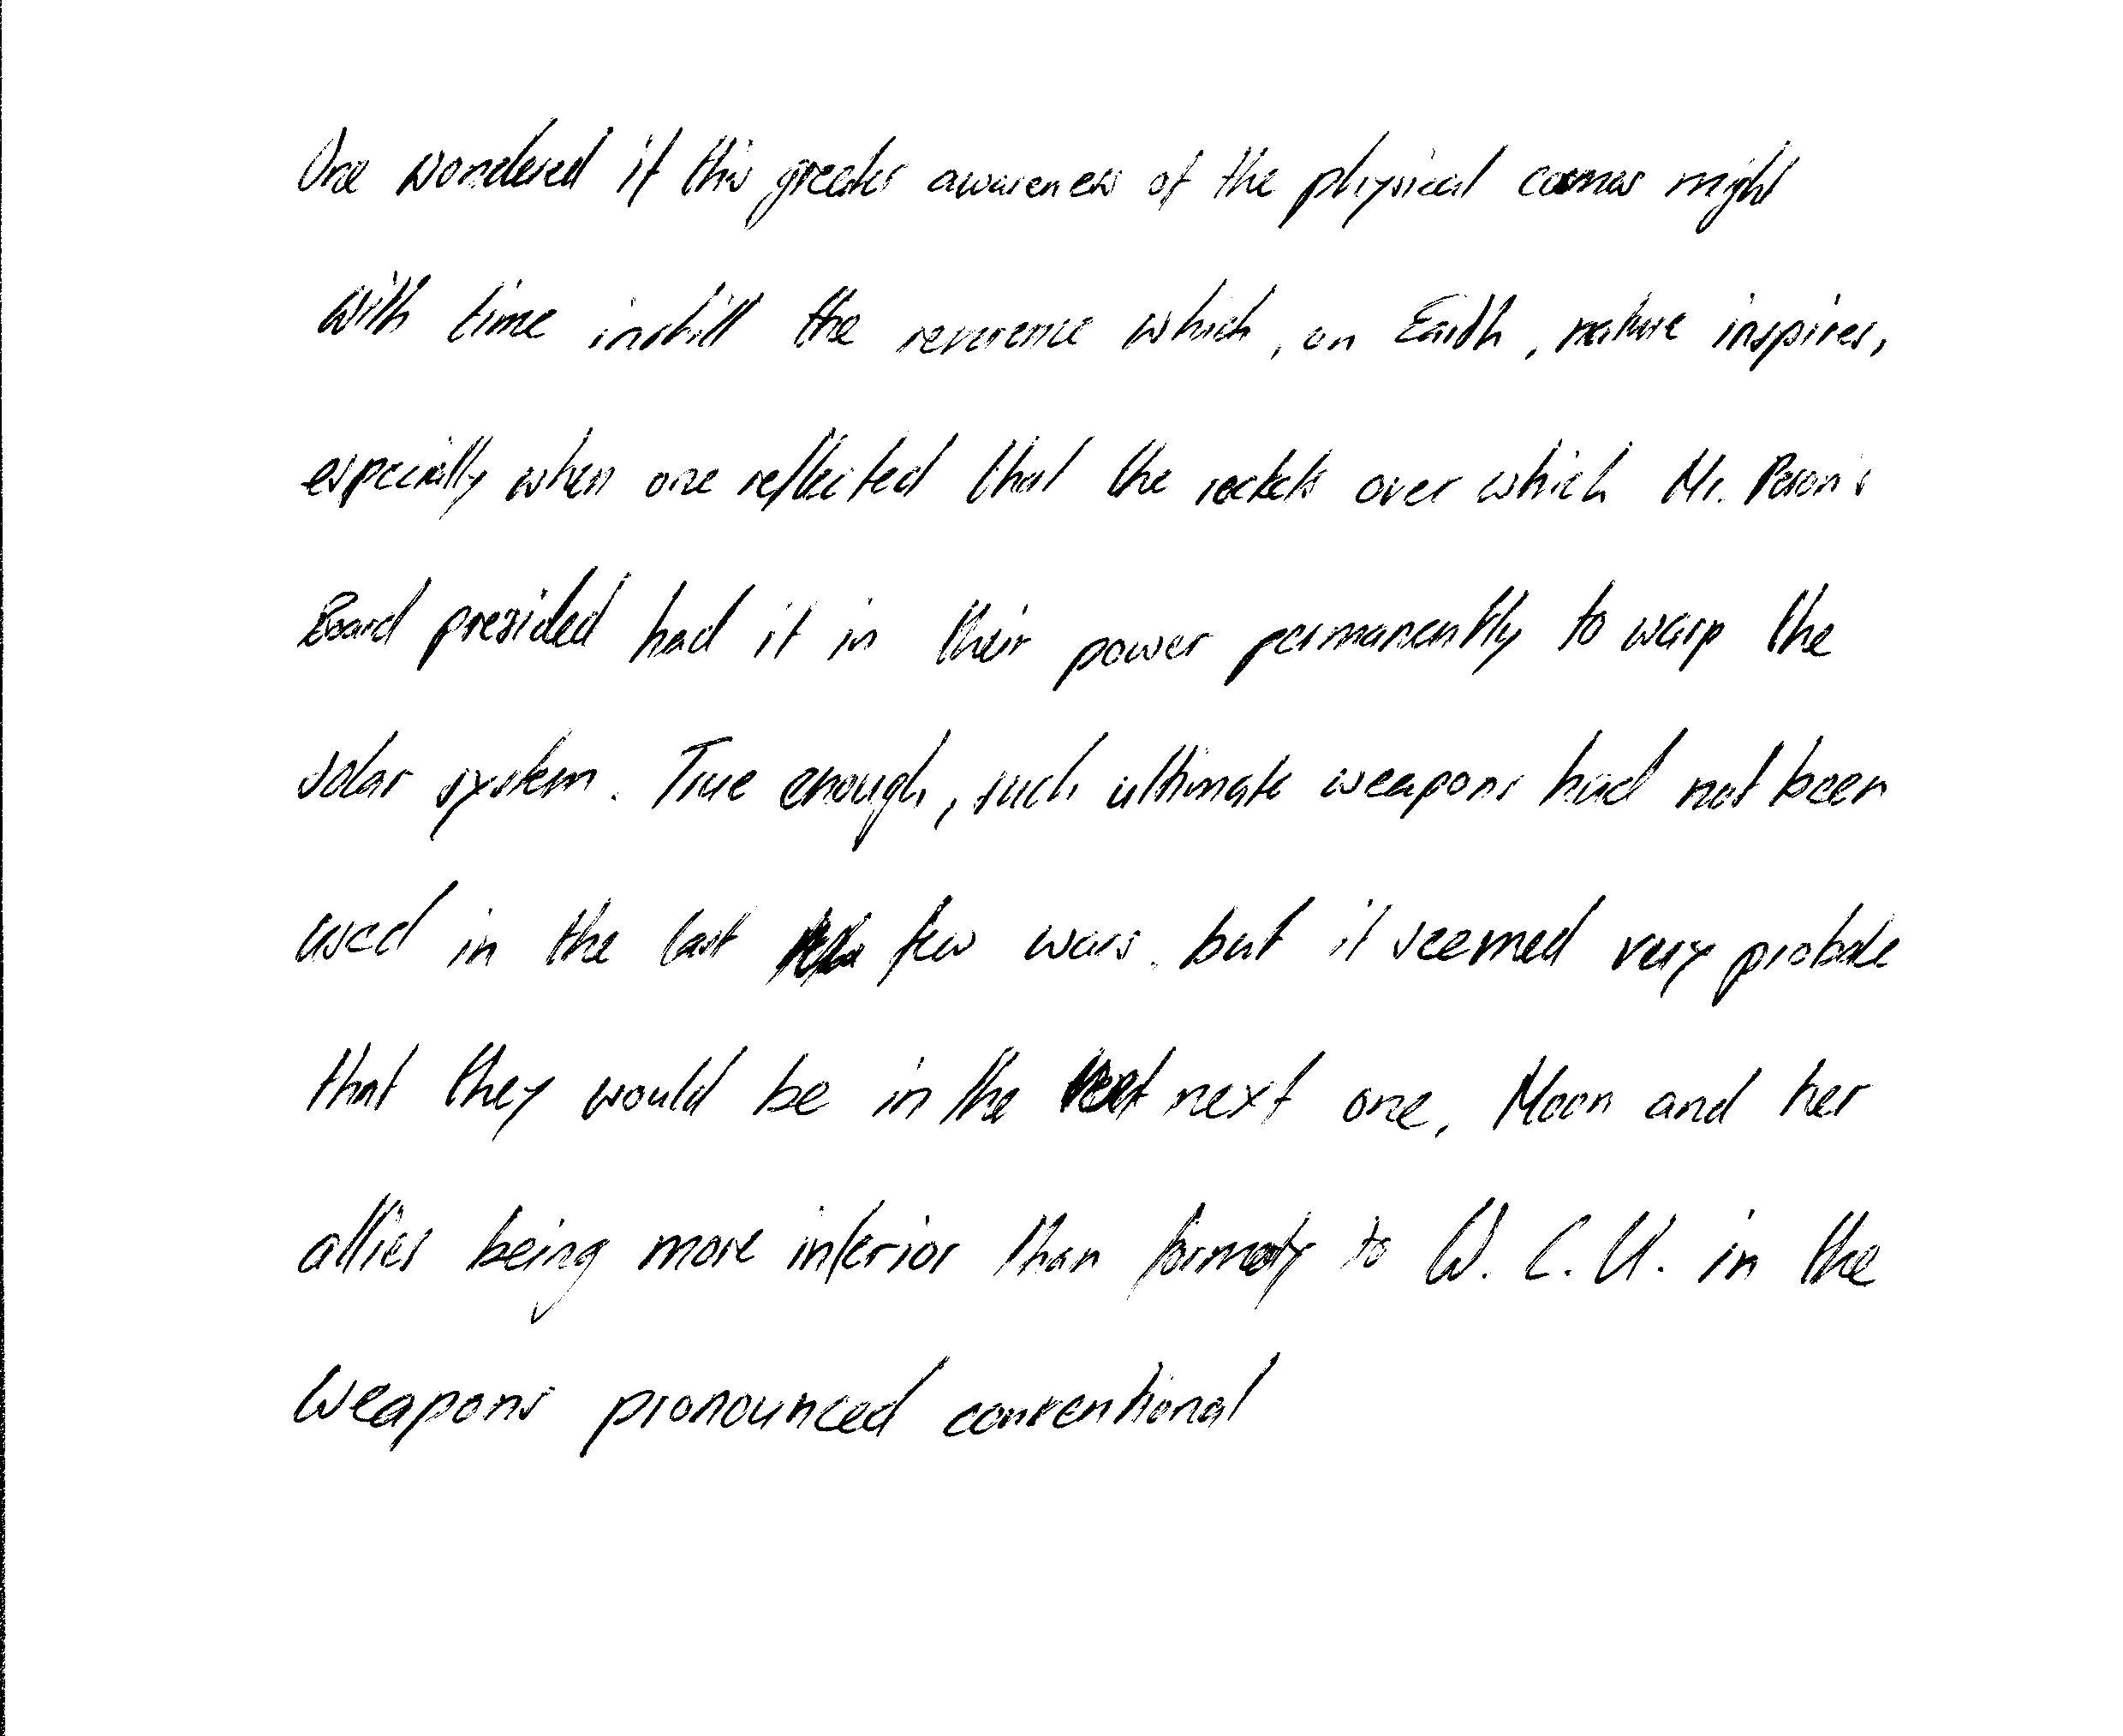 One wondered if this greater awareness of the physical cosmos might
with time instill the reverence which, on Earth, nature inspires,
especially when one reflected that the rockets over which Mr. Peron's
Board presided had it in their power permanently to warp the
solar system. True enough, such ultimate weapons had not been
used in the last few wars. but it seemed very probable
that they would be in the next one, Moon and her
allies being more inferior than formerly to W. C. U. in the
weapons pronounced conventional